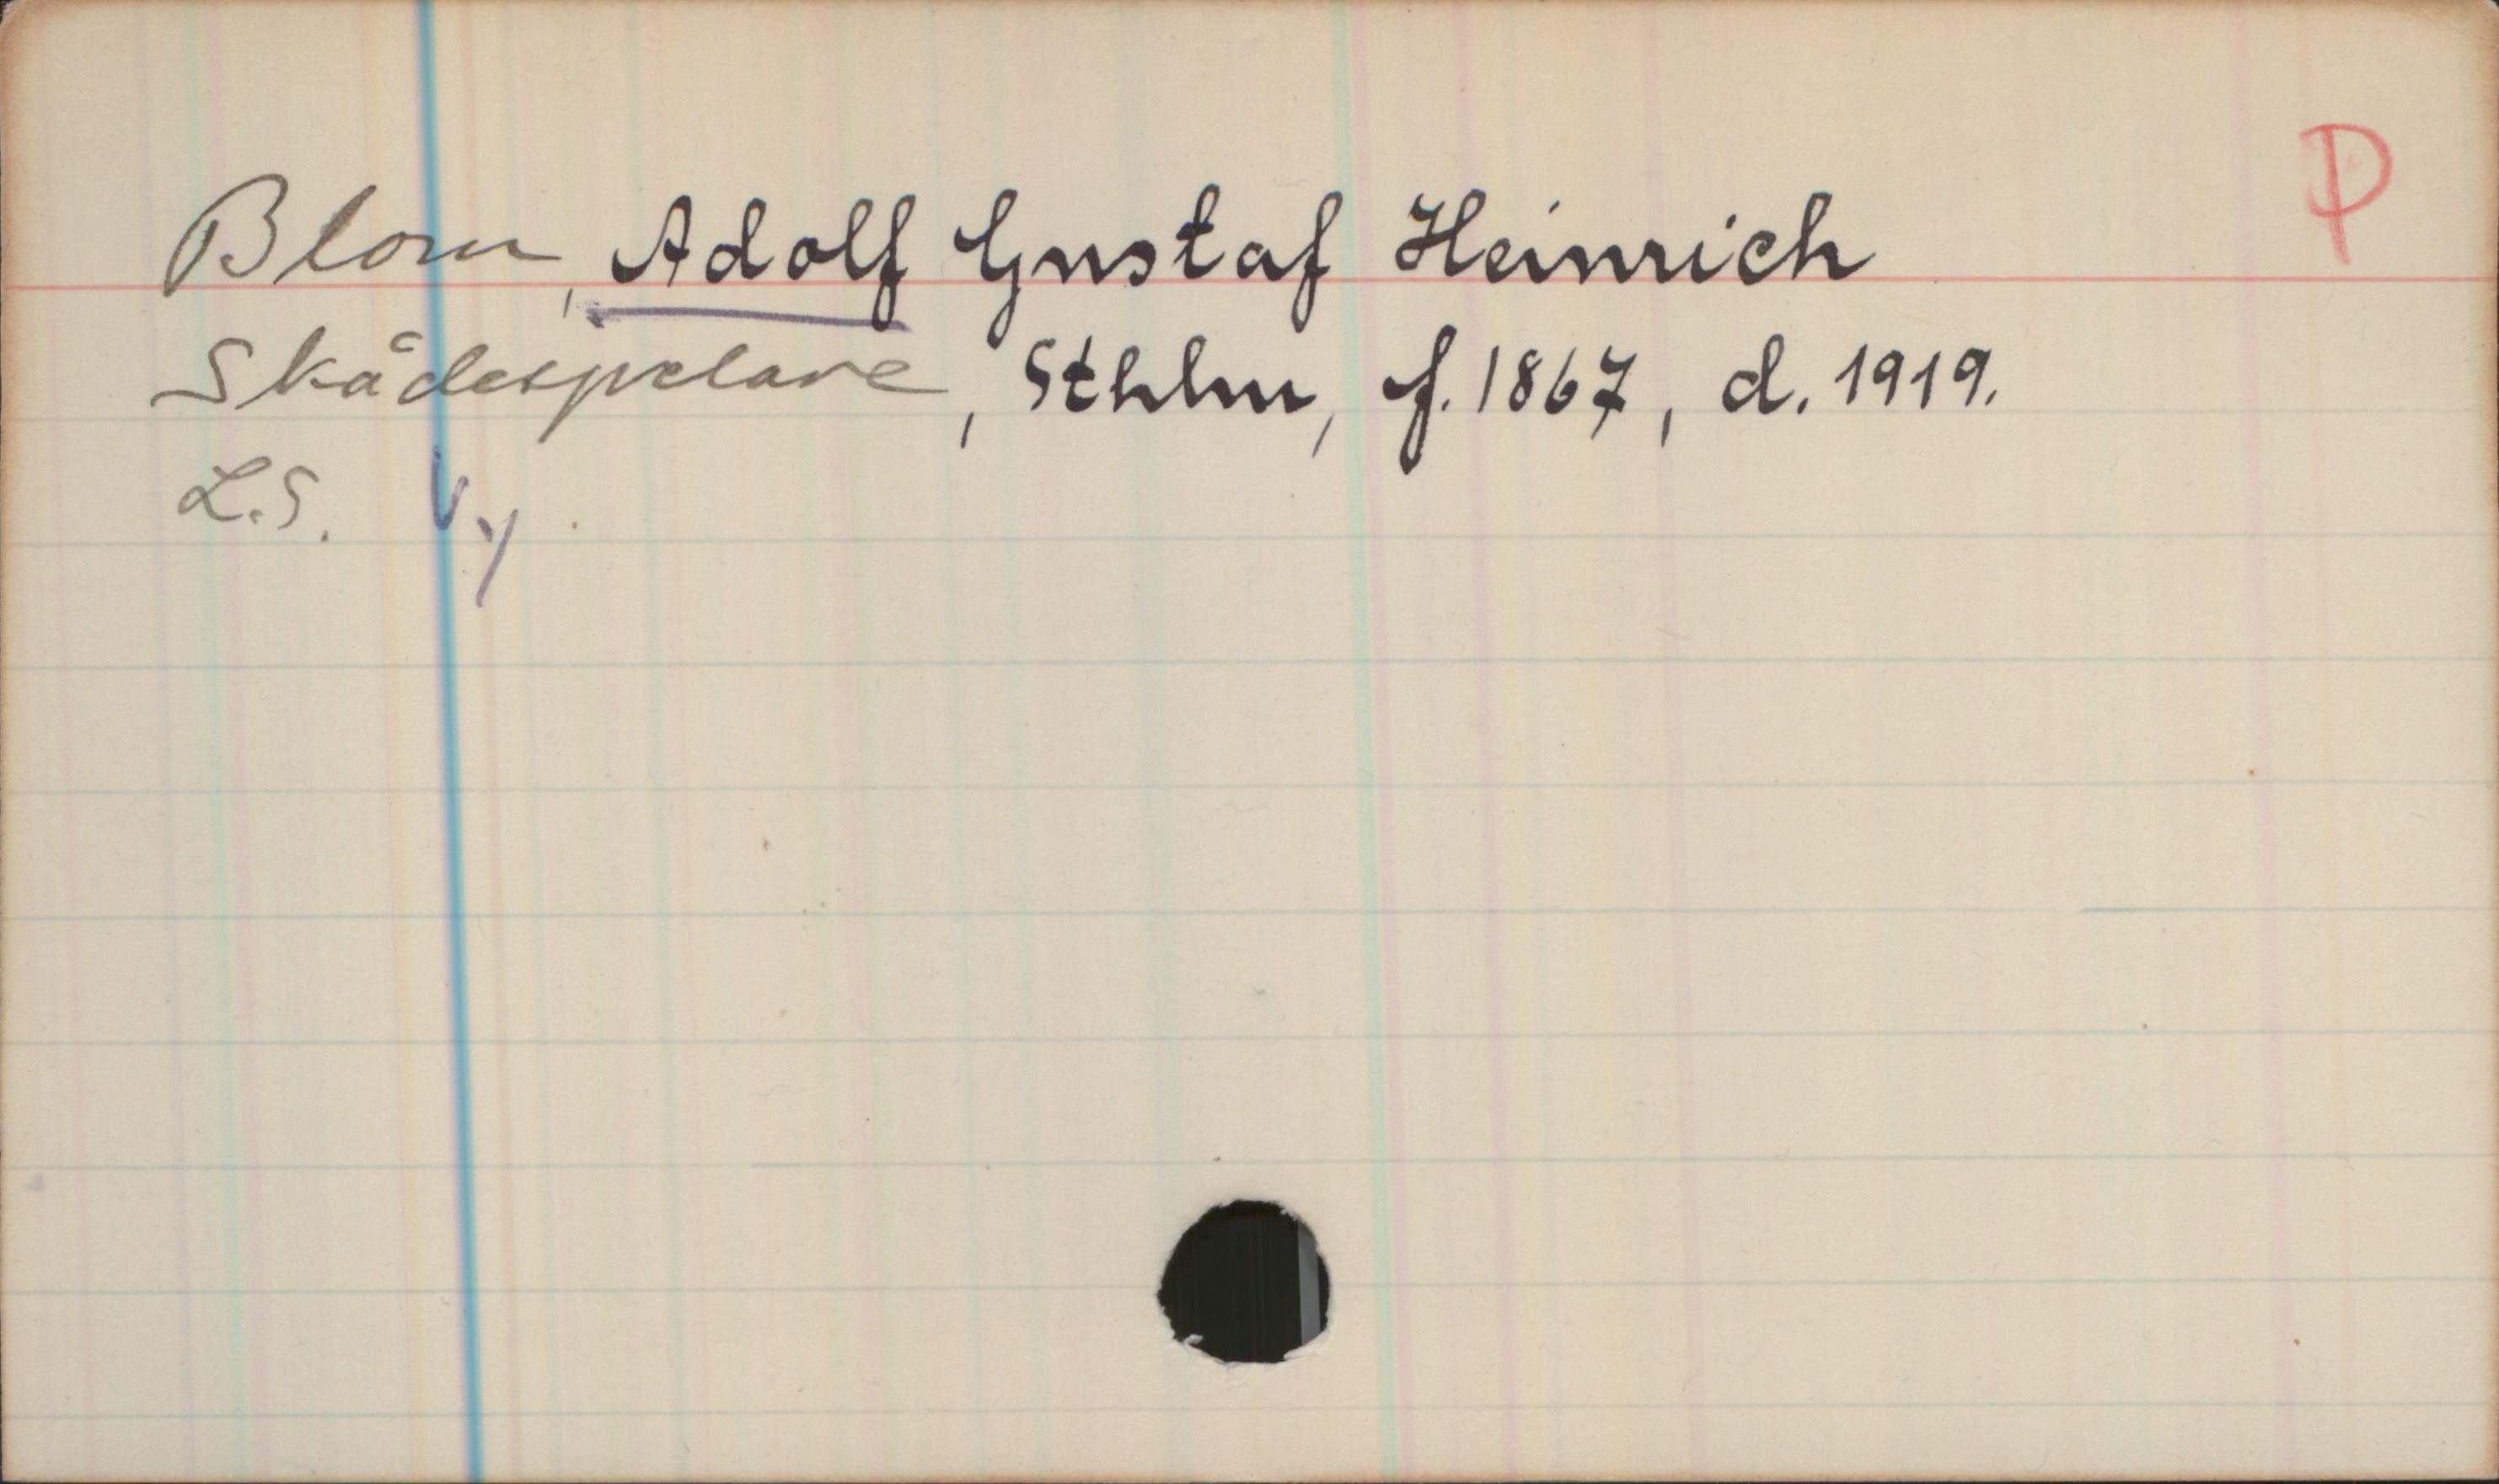 P
Blom, Adolf Gustaf Heinrich
Skådespelare, Sthlm, f. 1867, d. 1919.
L.S. Vy